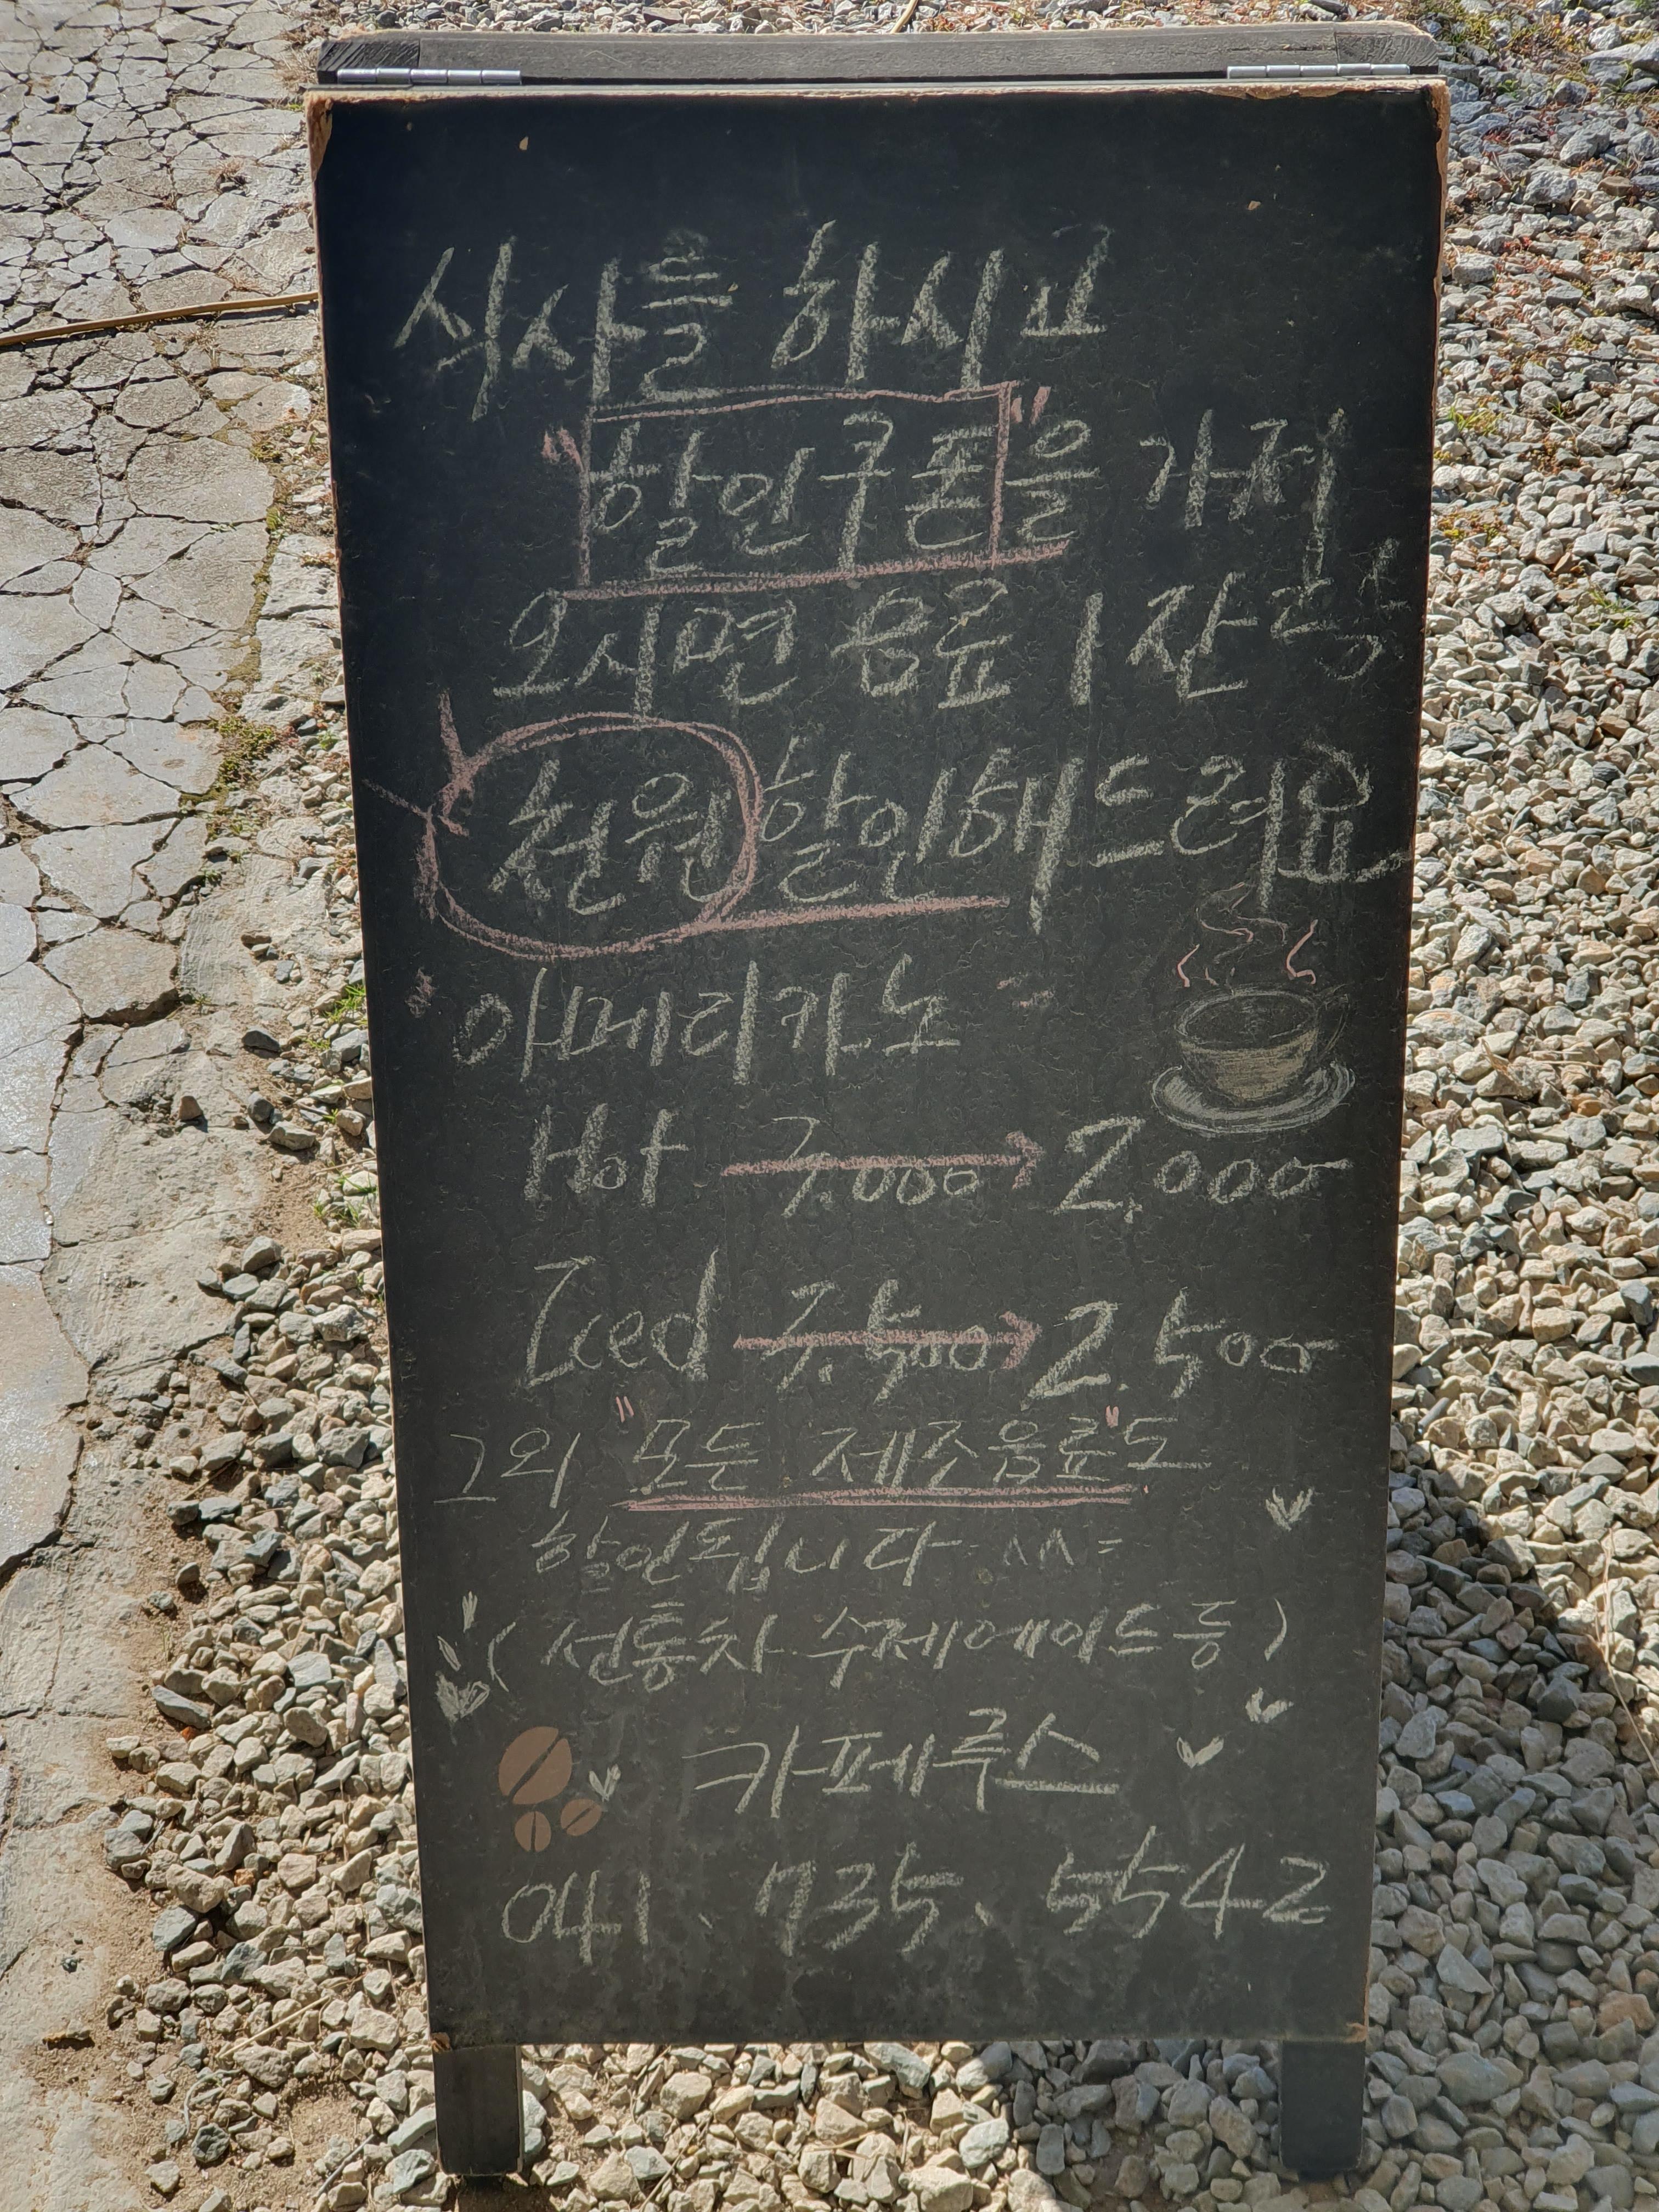 식사를 하시고
"할인쿠폰"을 가져
오시면 음료 1잔당
천원 할인해드려요
"아메리카노"
Hot 3,000 → 2,000
Iced 3,500 → 2,500
그외 "모든 제조음료"도
할인됩니다. ^^=
(전통차. 수제에이드 등)
카페루스
041. 735. 5542